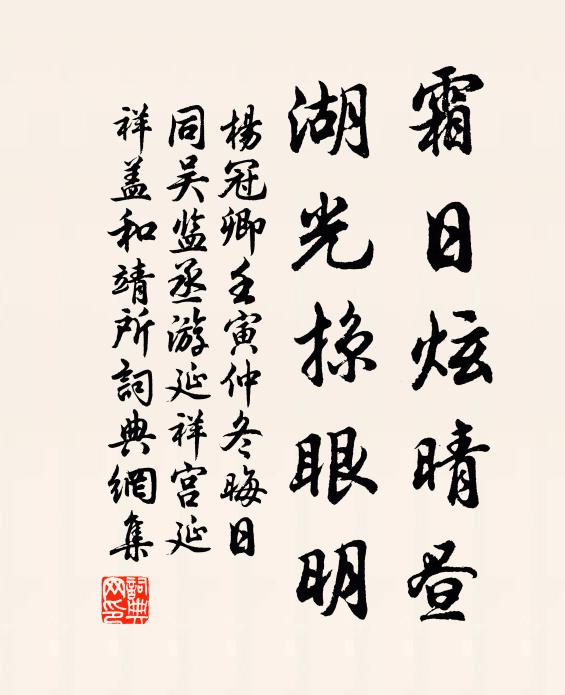 霜日炫晴昼
湖光掠眼明
楊冠卿壬寅仲冬晦日
同吴监丞游延祥宫延
祥盖和靖所詞典網集
詞典网印